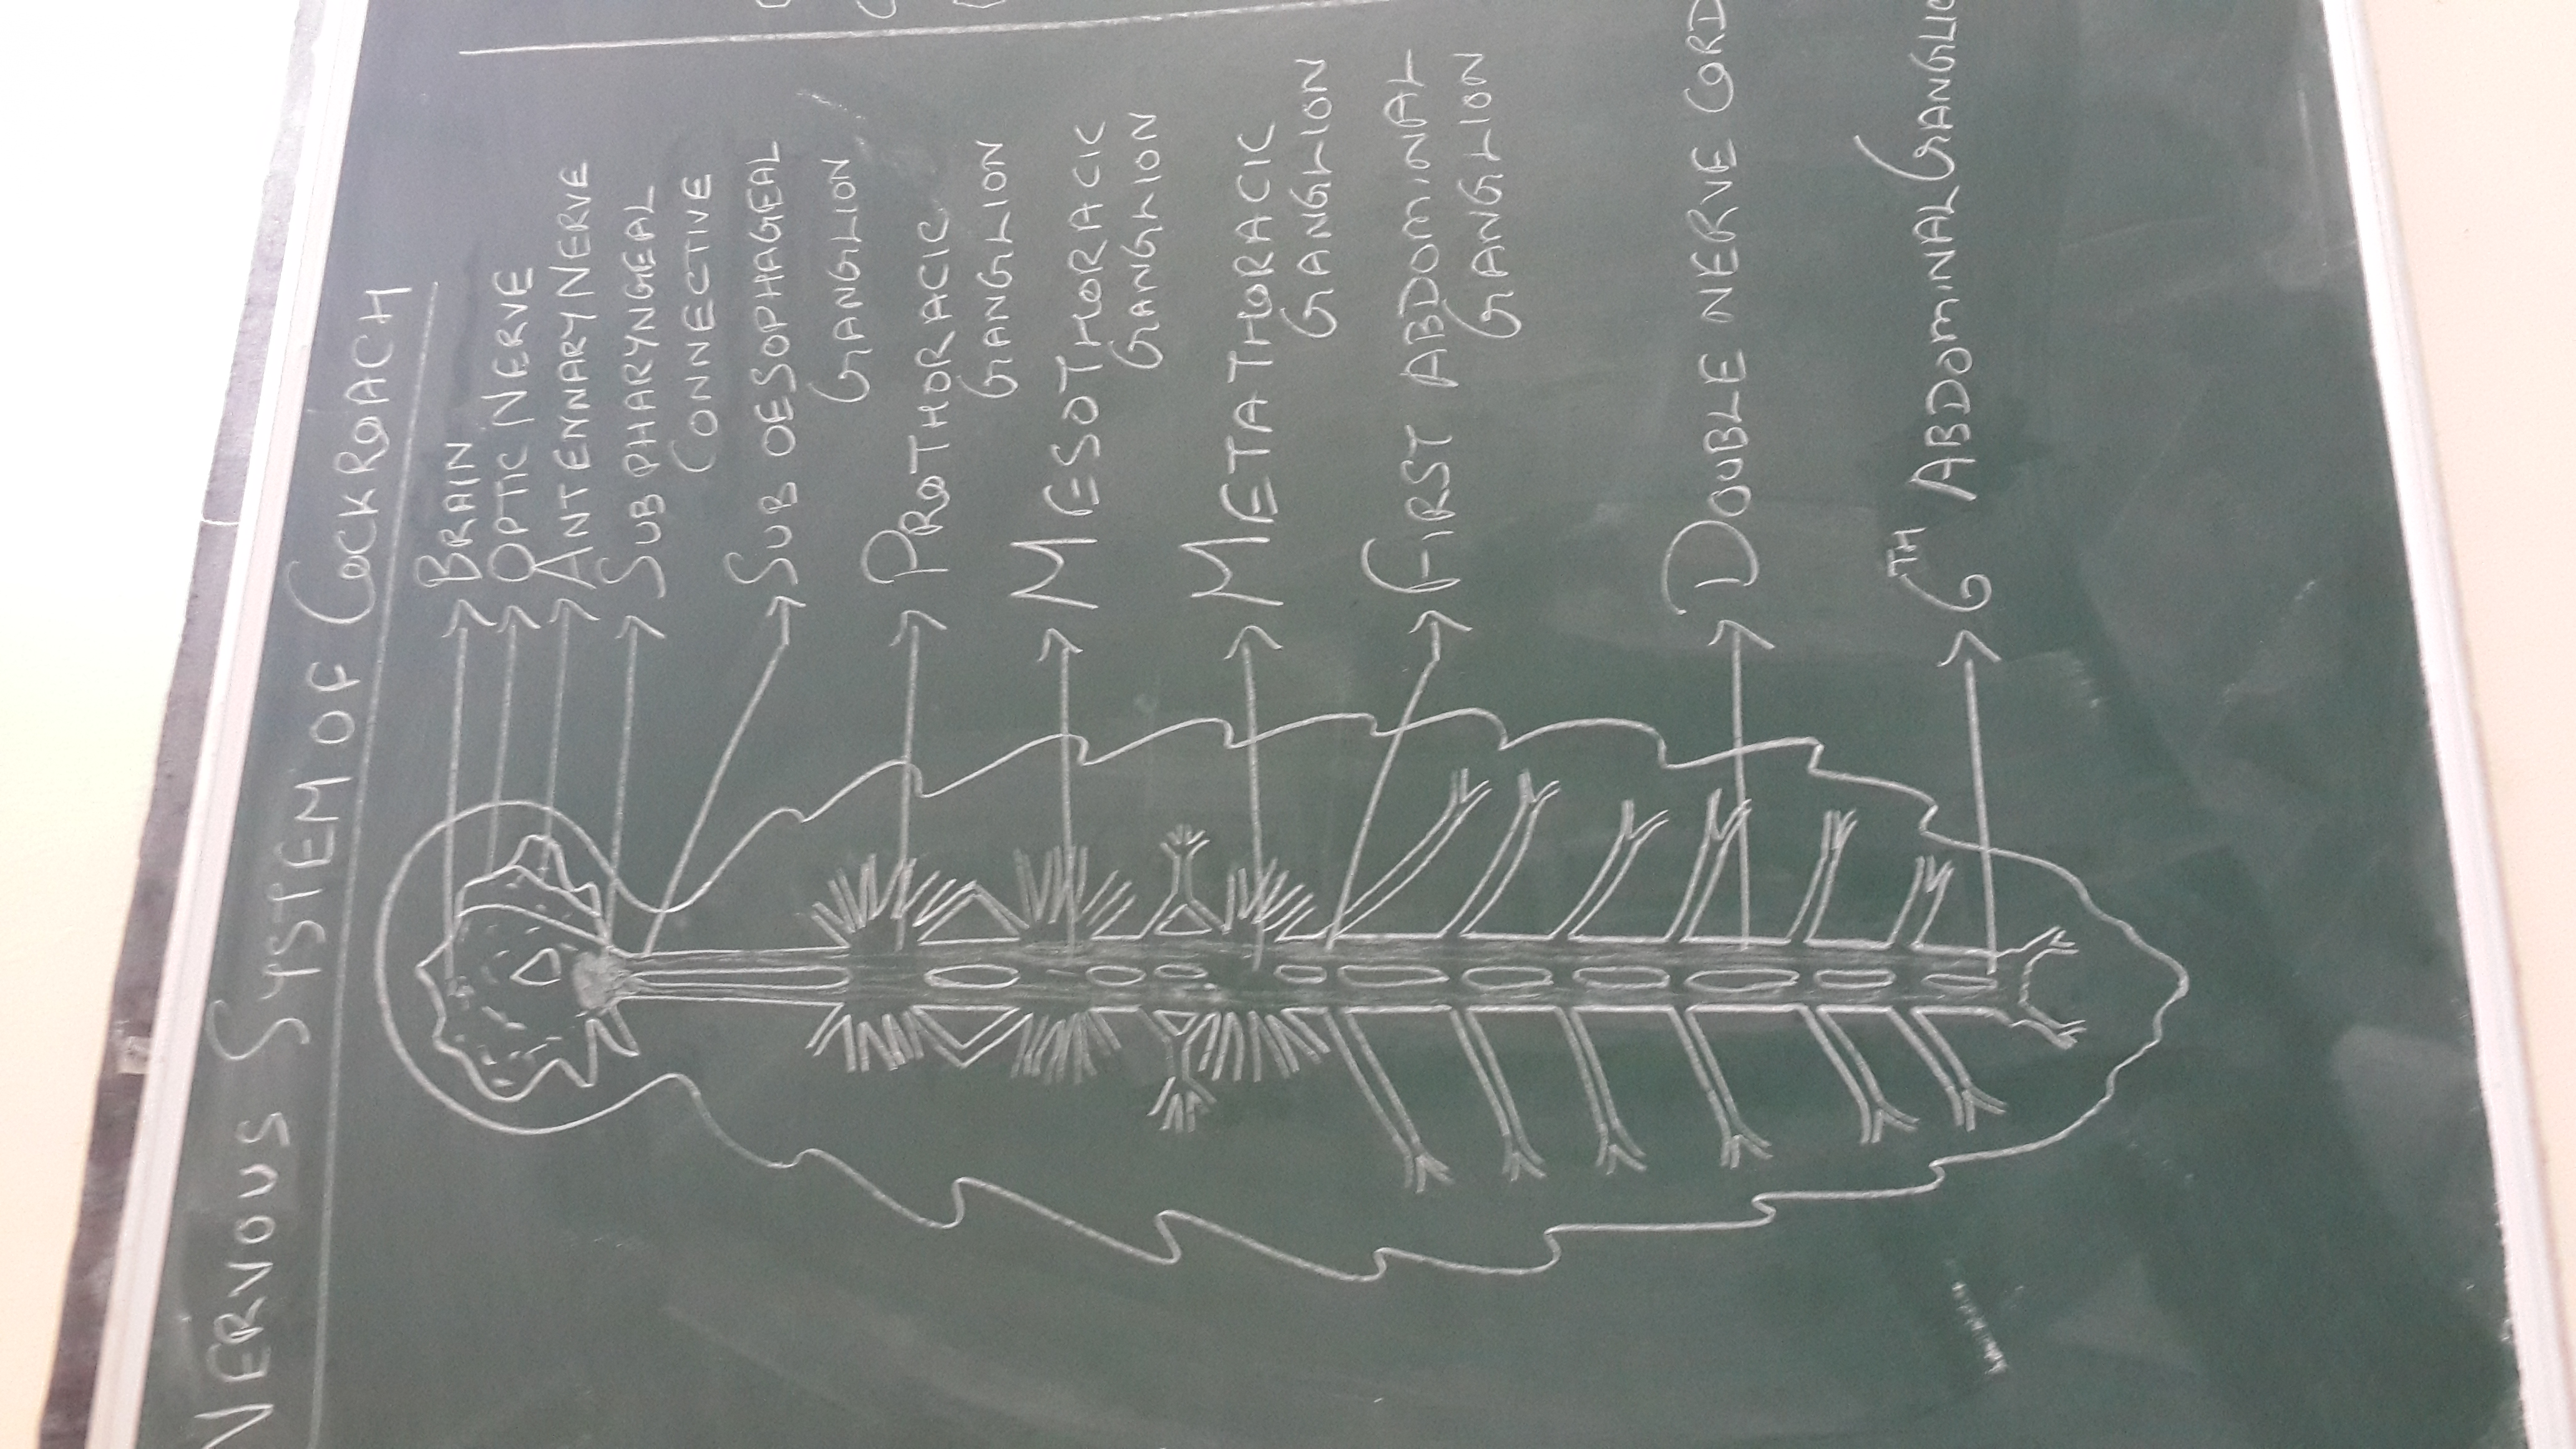 NERVOUS SYSTEM OF COCKROACH
BRAIN
OPTIC NERVE
ANTENNARY NERVE
SUB PHARYNGEAL
CONNECTIVE
SUB OESOPHAGEAL
GANGLION
PROTHORACIC
GANGLION
MESOTHORACIC
GANGLION
METATHORACIC
GANGLION
FIRST ABDOMINAL
GANGLION
DOUBLE NERVE CORD
6TH ABDOMINAL GANGLIO